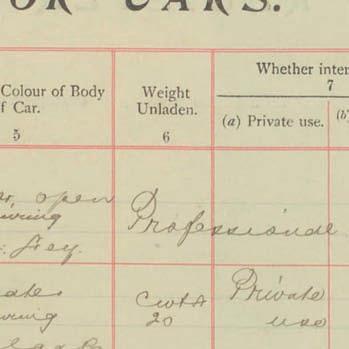 OR CARS.
Colour of Body
f Car.
5
Weight
Unladen.
6
Whether inter
7
(a) Private use.
(b)
open
Professional
Grey.
cwts
20
Private
use